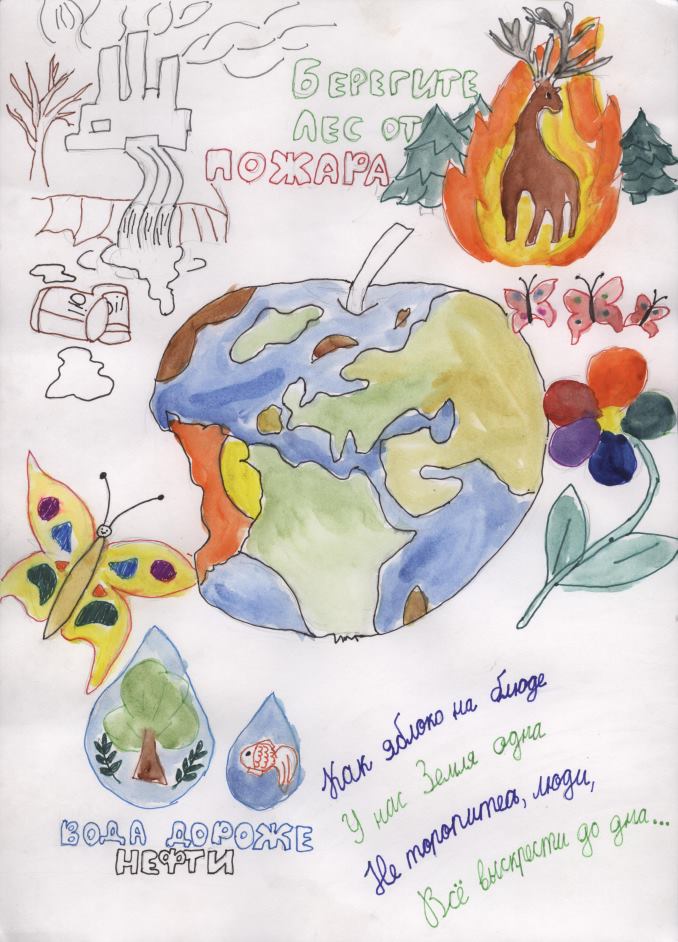 БЕРЕГИТЕ
ЛЕС ОТ
ПОЖАРА
Как яблоко на блюде
У нас Земля одна
Не торопитесь, люди,
Всё выскрести до дна...
ВОДА ДОРОЖЕ
НЕФТИ